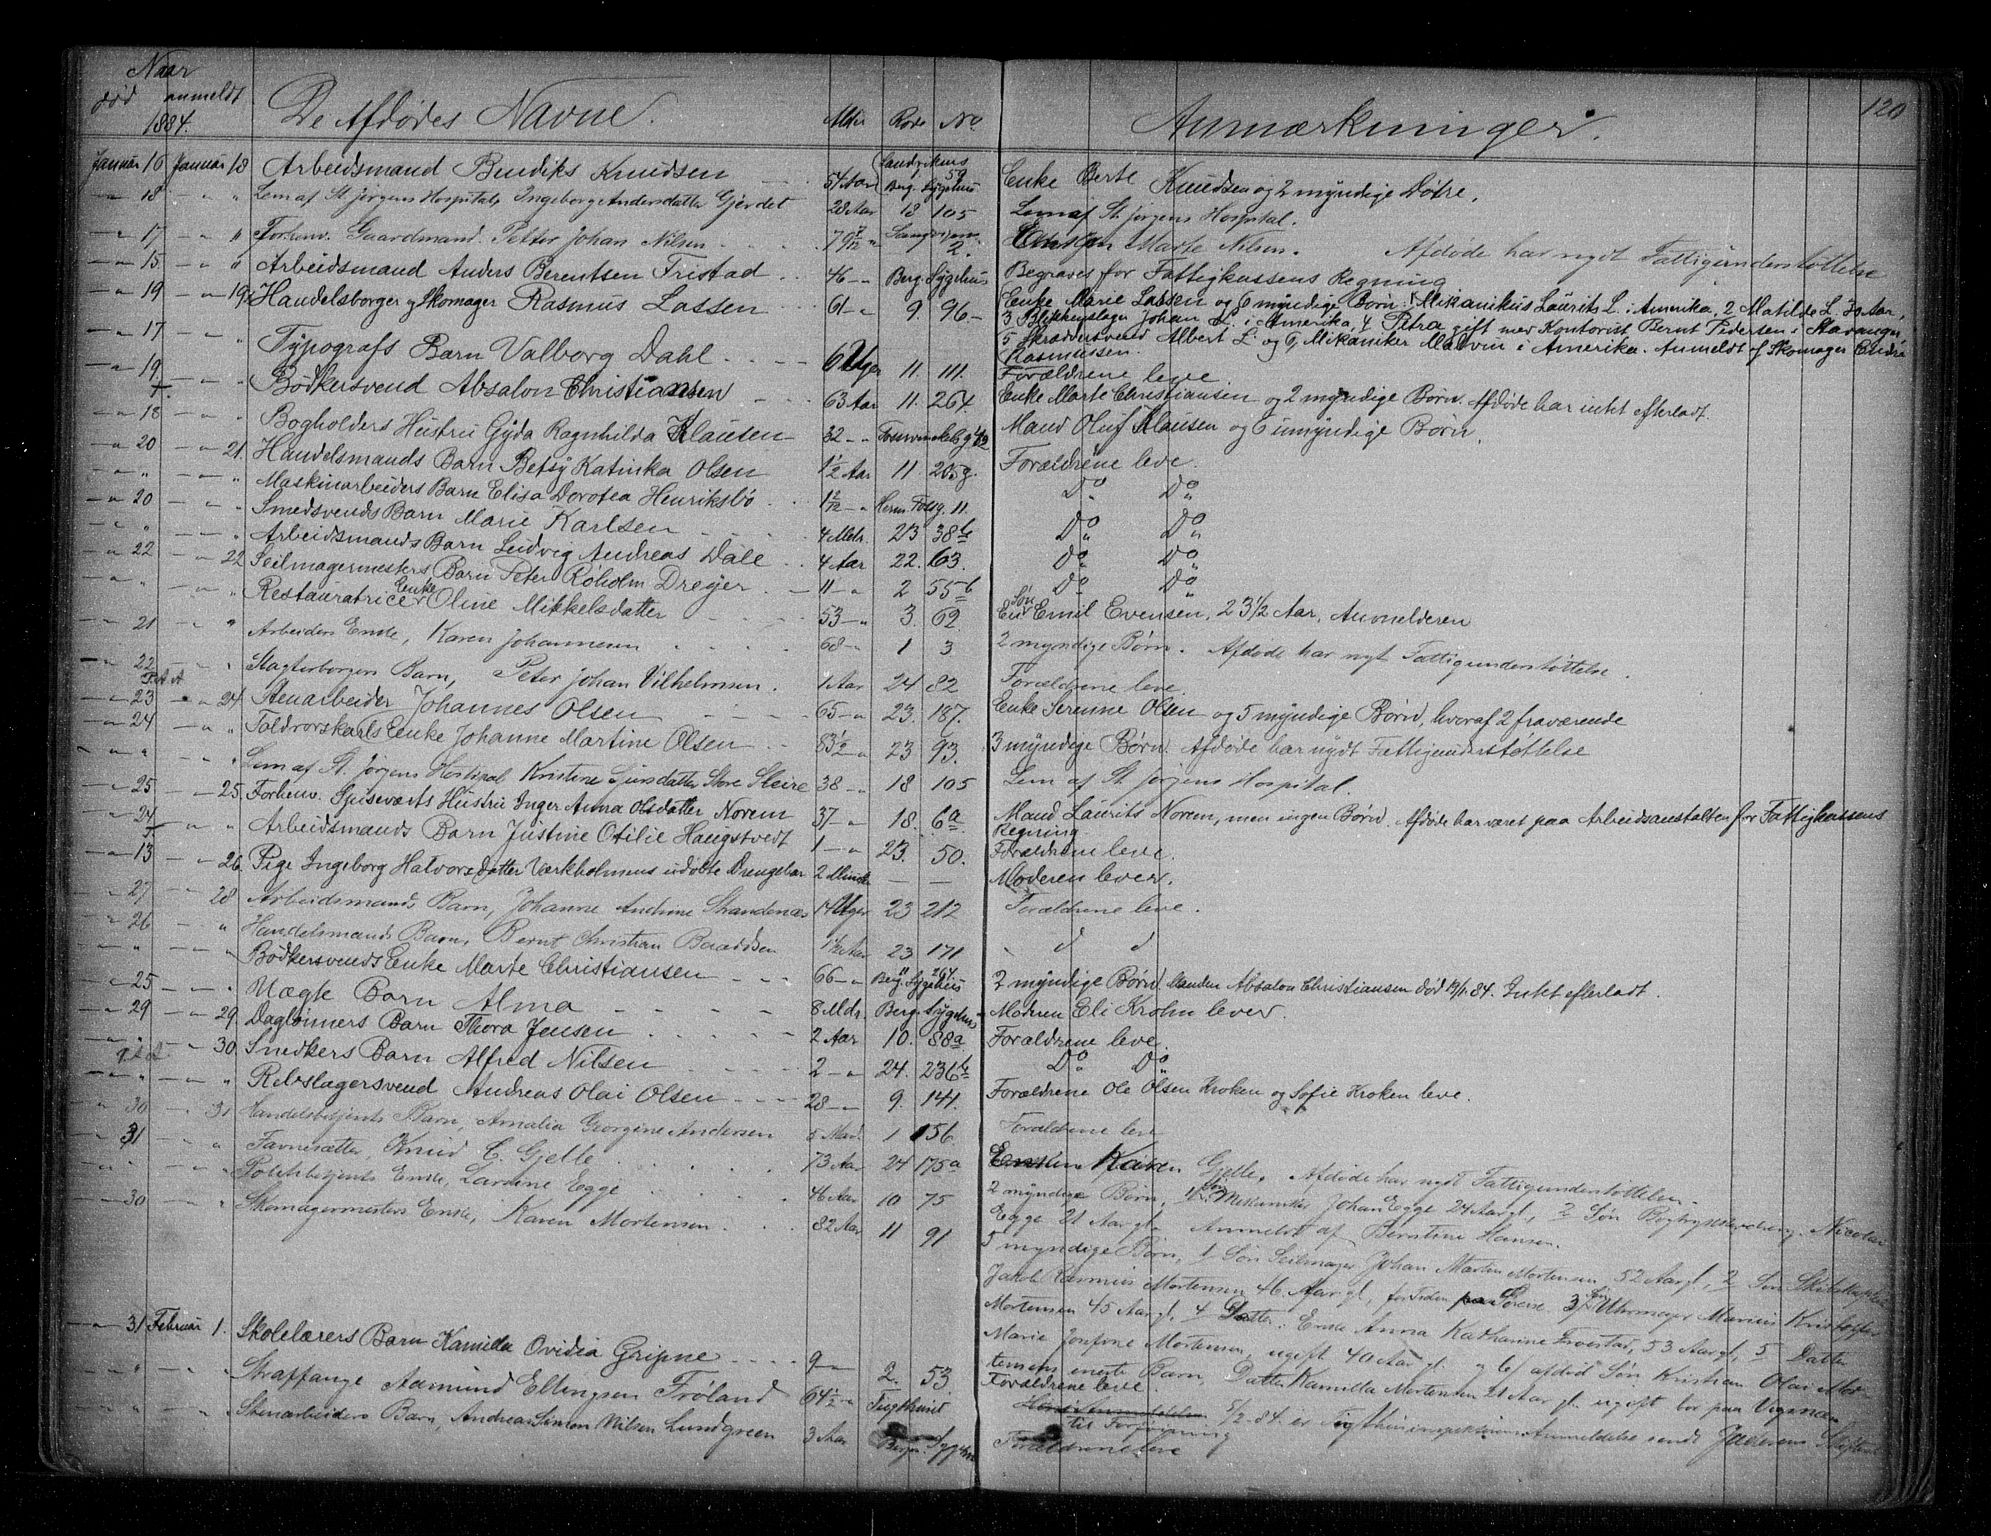 120
Naar
død anmeldt De Afdødes Navne. Alder Rode No. Anmærkninger.
1884.
Januar 16 Januar 18 Arbeidsmand Bendiks Knudsen 54 Aar Sandvikens 1 59 Enke Berte Knudsen og 2 myndige Døtre.
18 " " Lem af St Jørgens Hospital, Ingeborg Andersdatter Gjerdet 28 Aar 18 105 Lem af St. Jørgens Hospital.
17 " Forhenv. Gaardmand. Petter Johan Nilsen 79 2. Marte Nilsen. Afdøde har nydt Fattigunderstøttelse
15 " Arbeidsmand Anders Berentsen Fristad 46 " Berg. Sygehus Begraves for Fattigkassens Regning
19 19 Handelsborger og Skomager Rasmus Lassen 61 " 9 96 Enke Marie Lassen og 6 myndige Børn: 1 Mikanikus Laurits L. i Amerika, 2 Matilde L. 30 Aar,
3 Blikkenslager Johan L. i Amerika, 4 Petra gift med Kontorist Bernt Pedersen i Stavanger
5 Skræddersvend Albert L. og 6, Mikaniker Malvin i Amerika. Anmeldt af Skomager Endre
Rasmussen.
17 " Typografs Barn Valborg Dahl 6 Uger 11. 111. Forældrene leve.
19 " Bødkersvend Absalon Christiansen 63 Aar 11. 264 Enke Marte Christiansen og 2 myndige Børn. Afdøde har intet efterladt.
18 " Bogholders Hustru Gyda Ragnhilda Klausen 32 " Mand Oluf Klausen og 6 umyndige Børn.
20 21. Handelsmands Barn Betsy Katinka Olsen 1½ Aar 11 205g. Forældrene leve.
" " Maskinarbeiders Barn Elisa Dorotea Henriksbø Herm. Fossg. 11. Do Do
20 " Smedsvends Barn Marie Karlsen 4 Mdr. 23 38b Do Do
" " Arbeidsmands Barn Ludvig Andreas Dale 4 Aar 22. 63. Do Do
22 22 Seilmagermesters Barn Peter Røholm Dreyer 11 " 2 55b Do Do
" " Restauratrice Enke Oline Mikkelsdatter 53 " 3. 62. En Søn Emil Evensen, 23½ Aar, Anmelderen
21 " Arbeiders Enke, Karen Johannesen 68 " 1 3 2 myndige Børn. Afdøde har nydt Fattigunderstøttelse.
22 " Slagterborgers Barn, Peter Johan Vilhelmsen. 1 Aar 24 82 Forældrene leve.
23 24 Stenarbeider Johannes Olsen 65 " 23. 187. Enke Serenne Olsen og 5 myndige Børn, hvoraf 2 fraværende
24 " Toldrorskarls Enke Johanne Martine Olsen 83½ " 23 93. 3 myndige Børn. Afdøde har nydt Fattigunderstøttelse
" " Lem af St. Jørgens Hospital, Kristine Store Sleire 38 " 18 105 Lem af St. Jørgens Hospital.
25 25. Forhenv. Hustru Inger Anna Olsdatter Norem 37 " 18. 6a Mand Laurits Norem, men ingen Børn. Afdøde har været paa Arbeidsanstalten for Fattigkassens
Regning
24 " Arbeidsmands Barn Justine Otilie Haugstvedt 1 " 23. 50. Forældrene leve.
13 26. Pige Ingeborg Halvorsdatter Værkholmens udøbte Drengebarn 2 — — Moderen lever.
27 28 Arbeidsmands Barn, Johanne Andrine Strandenæs 14 Uger 23 212 Forældrene leve.
26 " Handelsmands Barn, Bernt Christian Baardsen 1½ Aar 23 171 d d
" " Bødkersvends Enke Marte Christiansen 66 " 11 264. Berg. Sygehus 2 myndige Børn. Manden Absalon Christiansen død 19/1. 84. Intet efterladt.
25 " Uægte Barn Alma 8 Mdr. Berg. Sygehus Moderen Eli Krohn lever.
29 29. Dagleiners Barn Thora Jensen 2 Aar 10. 88a Forældrene leve.
" 30. Snedkers Barn Alfred Nilsen 2 " 24. 236b Do Do
" " Rebslagersvend Andreas Olai Olsen 28 " 9. 141. Forældrene Ole Olsen Kroken og Sofie Kroken leve.
30 31 Handelsbetjents Barn, Amalia Georgine Andersen 5 1 156. Forældrene leve
31 " Favnesætter, Knud C. Gjelle 73 Aar 24 175a Enken Karen Gjelle, Afdøde har nydt Fattigunderstøttelse.
" " Politibetjents Enke, Lavine Egge 46 Aar 10 75 2 myndige Børn, 1 Søn Mekaniker Johan Egge 24 Aar gl, 2 Søn Nicolai
Egge 21 Aar gl. Anmeldt af Berntine Hansen.
30 " Skomagermesters Enke, Karen Mortensen 82 Aar 11 91 5 myndige Børn, 1 Søn Seilmager Johan Martin Mortensen, 52 Aar gl, 2 Søn
Jakob Rasmus Mortensen 46 Aar gl, for Tiden 3 Søn Uhrmager Marius Kristoffer
Mortensen 45 Aar gl. 4 Datter: Enke Anna Katharine 53 Aar gl, 5 Datter
Marie Mortensen, ugift 40 Aar gl. og 6/ afdød Søn Kristian Olai Mor-
tensens eneste Barn, Datter Kamilla Mortensen 21 Aar gl. ugift bor paa
31 Februar 1. Skolelærers Barn Kamilla Ovidia Gripne 9 " 2. 53. Forældrene leve.
" " Straffange Aamund Ellingsen Frøland 64½ " Tugthuset til Forføining 5/2-84. er Tugthusinspektionens Anmeldelse sendt
" " Stenarbeiders Barn, Andreas Simon Nilsen Lundgreen 3 Aar Forældrene leve